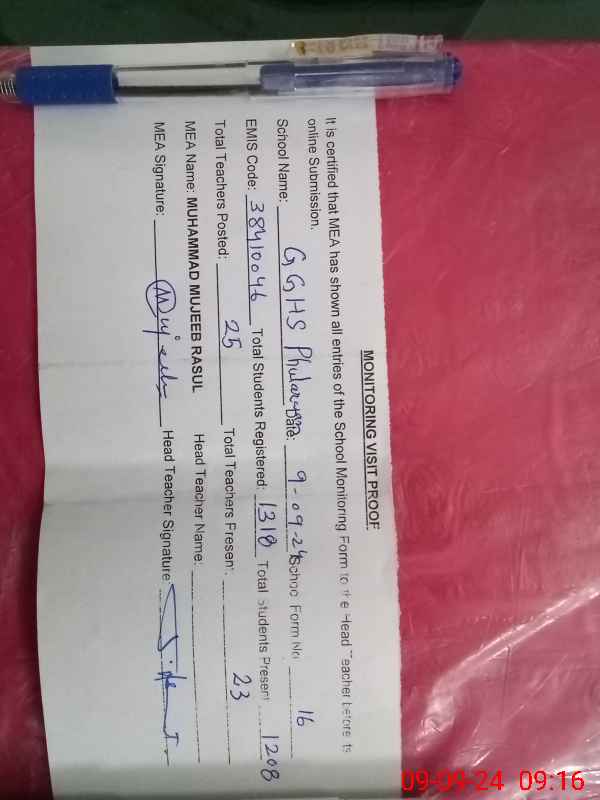 MONITORING VISIT PROOF
It is certified that MEA has shown all entries of the School Monitoring Form to the Head Teacher before its
online Submission.
School Name: GGHS Date: 9-09-24 School Form No. 16
EMIS Code: 38410046 Total Students Registered: 1318 Total Students Present 1208
Total Teachers Posted: 25 Total Teachers Present: 23
MEA Name: MUHAMMAD MUJEEB RASUL Head Teacher Name:
MEA Signature: Mujeeb Head Teacher Signature:
09-09-24 09:16